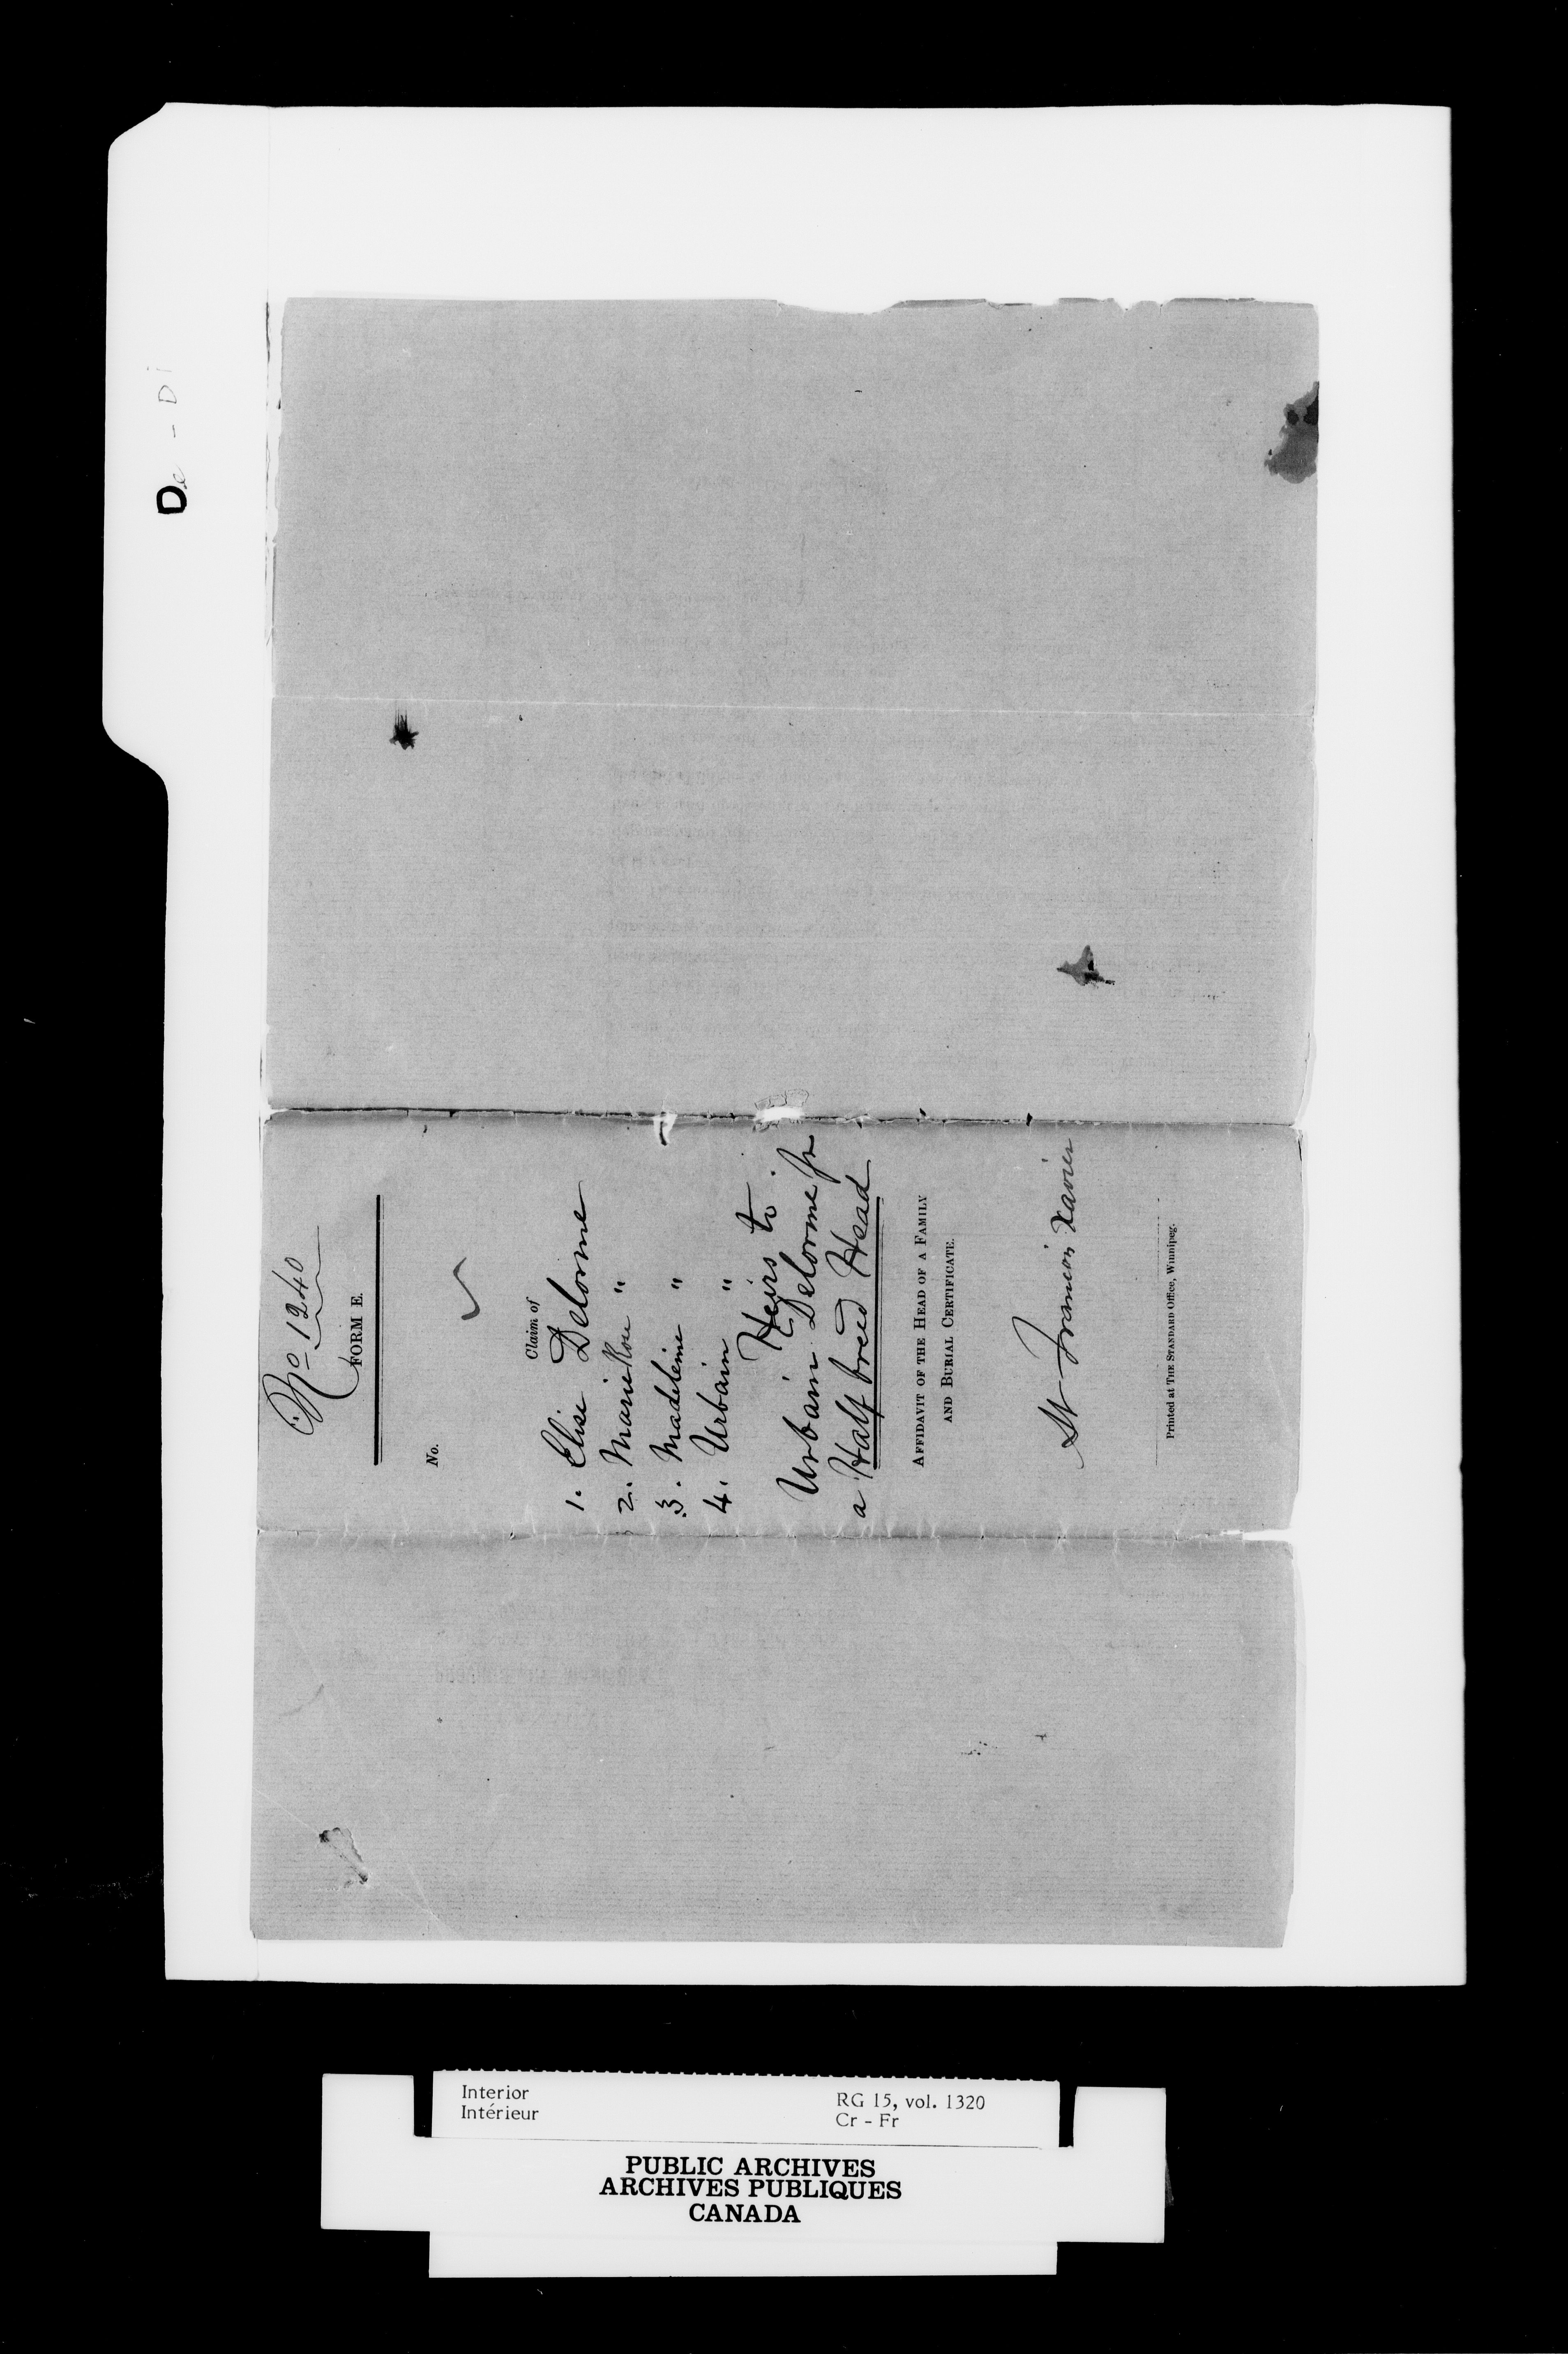 De - Di
No 1240
FORM E.
No.
Claim of
1. Elise Delorme
2. Marie Rose "
3. Madeleine "
4. Urbain "
Heirs to
Urbain Delorme Jr
a Half breed Head
AFFIDAVIT OF THE HEAD OF A FAMILY
AND BURIAL CERTIFICATE.
St Francois Xavier
Printed at THE STANDARD Office, Winnipeg.
Interior
Intérieur
RG 15, vol. 1320
Cr - Fr
PUBLIC ARCHIVES
ARCHIVES PUBLIQUES
CANADA